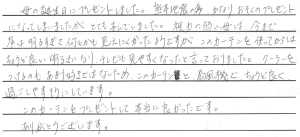 母の誕生日にプレゼントしました。熊本地震の為 かなりおそくのプレゼント
になってしまいましたが とても喜んでいました。視力の悪い母は、今まで
席は明るすぎて何もかも見えにくかったようですが このカーテンを使ってからは
ちょうど良い明るさになり、テレビも見やすくなったと言っておりました。クーラーを
つけるのもあまり好きではないため、このカーテンと扇風機で ちょうど良く
過ごしやすそうにしています。
このカーテンをプレゼントして本当に良かったです。
ありがとうございます。